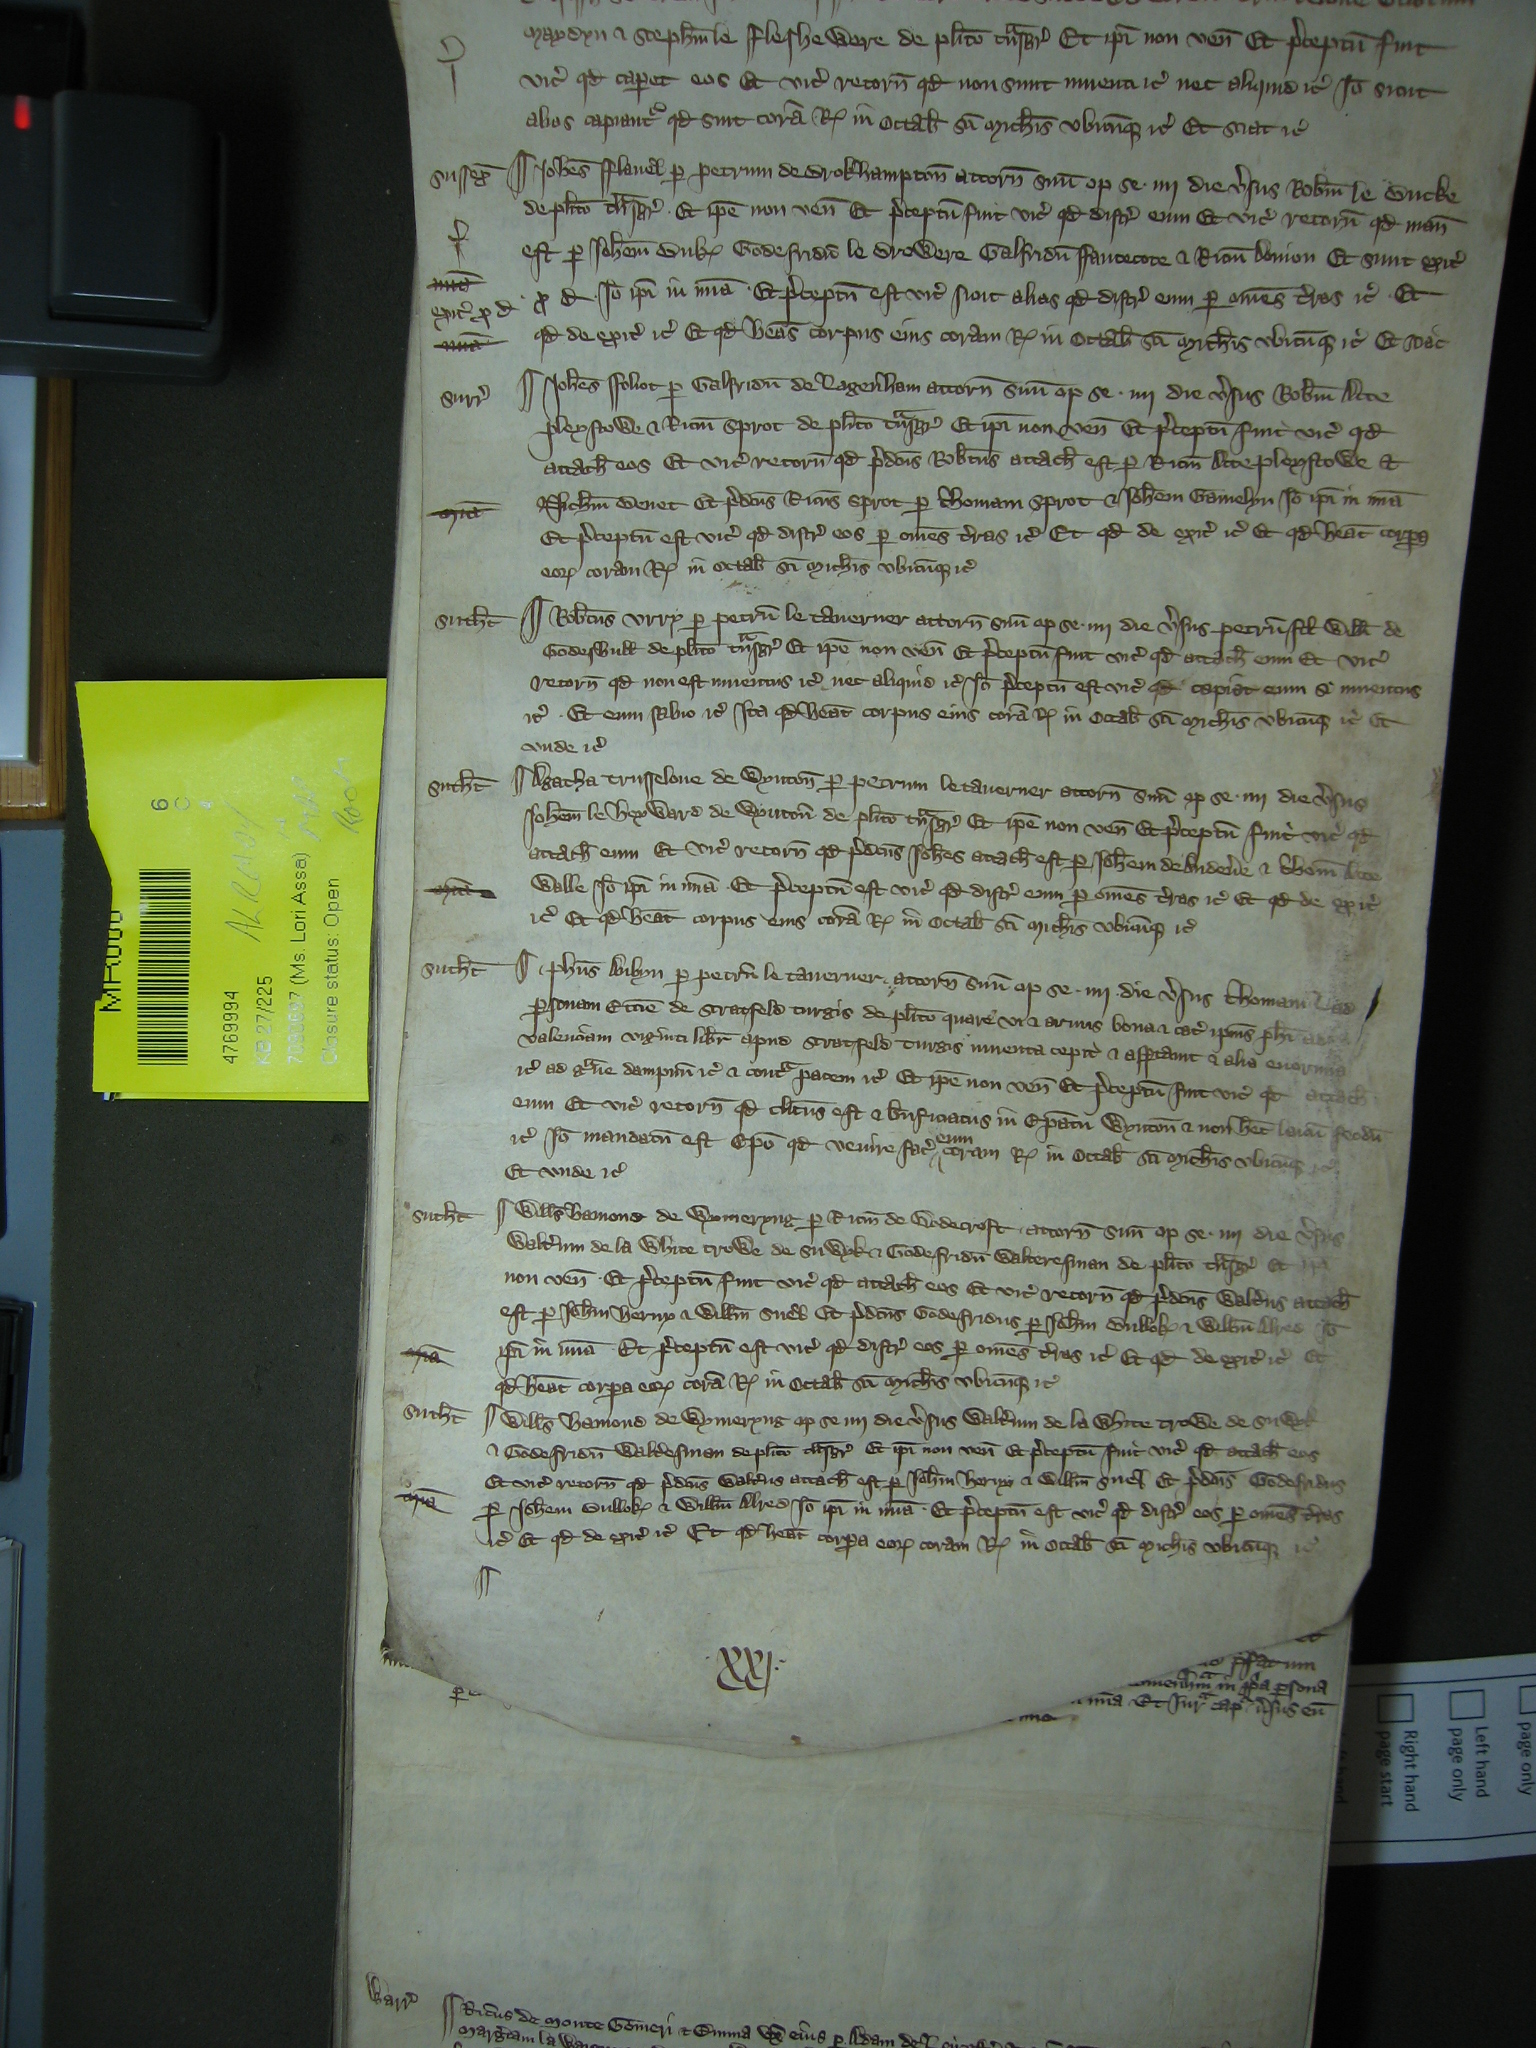 maydyn & Stephm le Fleshewere de plito tnsgr Et ipi non ven Et pceptu fuit
vic qd capet eos Et vic retorn qd non sunt inventi &c nec aliquid &c Io sicut
alias capiant qd sint cora R in Octab Sci Michis ubicuq &c Et sciat &c
Sussex Johes Flauel p Petrum de Brokhampton attorn suu op se iiii die vsus Robtm le Bucke
de plito tnsgr Et ipe non ven Et pceptu fuit vic qd distr eum Et vic retorn qd man
est p Johem Duk Godefridu le Drowere Galfridu Fantecote & Ricm Donion Et sunt exit
exit x d x d Io ipi in mia Et pceptu est vic sicut alias qd distr eum p omes tras &c Et
mia qd de exit &c Et qd heat corpus eius coram R in Octab Sci Michis ubicuq &c Et
Surr Johes Foliot p Galfridu de Ragenham attorn suu op se iiii die vsus Robtm Atte
Pleystowe & Ricm Sprot de plito tnsgr Et ipi non ven Et pceptu fuit vic qd
attach eos Et vic retorn qd pdcus Robtus attach est p Ricm Atte Pleystowe Et
Benet Et pdcus Ricus Sprot p Thomam Sprot & Johem Gamelyn Io ipi in mia
mia Et pceptu est vic qd distr eos p omes tras &c Et qd de exit &c Et qd heat corpa
eor coram R in Octab Sci Michis ubicuq &c
Sutht Robtus Urry p Petru le Taverner attorn suu op se iiii die vsus Petru fil Willi de
Godeshull de plito tnsgr Et ipe non ven Et pceptu fuit vic qd attach eum Et vic
retorn qd non est inventus &c nec aliquid &c Io pceptu est vic qd capiat eum si inventus
&c Et eum salvo &c Ita qd heat corpus eius cora R in Octab Sci Michis ubicuq &c Et
unde &c
Sutht Agatha Trusselove de Wynton p Petrum le Taverner attorn suu op se iiii die vsus
Johem le Heyward de Wynton de plito tnsgr Et ipe non ven Et pceptu fuit vic qd
attach eum Et vic retorn qd pdcus Johes attach est p Johem de Andevre & Thom Atte
mia Walle Io ipi in mia Et pceptu est vic qd distr eum p omes tras &c Et qd de exit
&c Et qd heat corpus eius cora R in Octab Sci Michis ubicuq &c
Sutht Phus Aubyn p Petru le Taverner attorn suu op se iiii die vsus Thomam
psonam Eccie de Stratfeld Turgis de plito quare vi & armis bona & cat ipius Phi ad
valenciam viginti libr apud Stratfeld Turgis inventa cepit & asptavit & alia enormia
&c ad gve dampnu &c & cont pacem &c Et ipe non ven Et pceptu fuit vic qd attach
eum Et vic retorn qd clicus est & bnficiatus in Epatu Wynton & non het laicu feodu
&c Io mandatu est Epo qd venire fac eum coram R in Octab Sci Michis ubicuq &c
Et unde &c
Sutht Wills Hamond de Wymeryng p Ricm de Wodecroft attorn suu op se iiii die vsus
Waltum de la Whitetrowe de Suwyk & Godefridu Walteresman de plito tnsgr Et ipi
non ven Et pceptu fuit vic qd attach eos Et vic retorn qd pdcus Waltus attach
est p Johem Berny & Willm Snel Et pdcus Godefridus p Johem Bullok & Willm Alred Io
mia ipi in mia Et pceptu est vic qd distr eos p omes tras &c Et qd de exit &c Et
qd heat corpa eor cora R in Octab Sci Michis ubicuq &c
Sutht Wills Hamond de Wymeryng op se iiii die vsus Waltum de la Whitetrowe de Suwyk
& Godefridu Waltesman de plito tnsgr Et ipi non ven Et pceptu fuit vic qd attach eos
Et vic retorn qd pdcus Waltus attach est p Johem Berny & Willm Snel Et pdcus Godefridus
mia p Johem Bullok & Willm Alred Io ipi in mia Et pceptu est vic qd distr eos p omes tras
&c Et qd de exit &c Et qd heat corpa eor coram R in Octab Sci Michis ubicuq &c
XXI
psona
mia Et Jur cap vsus eu
Warr Ricus de Monte Gomeri & Emma ux eius p Adam de
6
4769994
KB 27/225
(Ms. Lori Assa)
Closure status: Open
ALREADY
Right hand
page start
Left hand
page only
page only